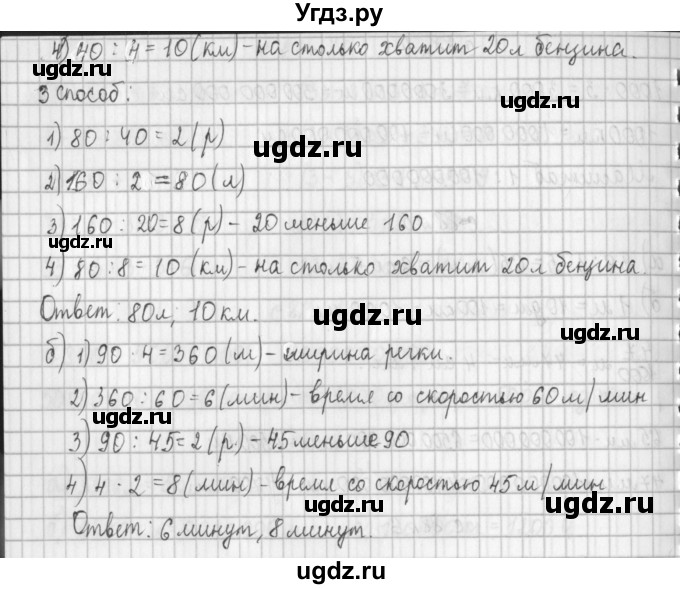 Угдз.ру
4) 40 : 4 = 10 (км) - на столько хватит 20 л бензина.
ugdz.ru
3 способ:
1) 80 : 40 = 2 (р)
ugdz.ru
ugdz.ru
2) 160 : 2 = 80 (л)
3) 160 : 20 = 8 (р) - 20 меньше 160
ugdz.ru
4) 80 : 8 = 10 (км) - на столько хватит 20 л бензина.
ugdz.ru
Ответ: 80 л; 10 км.
ugdz.ru
б) 1) 90 · 4 = 360 (м) - ширина реки.
ugdz.ru
2) 360 : 60 = 6 (мин) - время со скоростью 60 м/мин
ugdz.ru
3) 90 : 45 = 2 (р.) - 45 меньше 90
ugdz.ru
4) 4 · 2 = 8 (мин) - время со скоростью 45 м/мин
ugdz.ru
Ответ: 6 минут, 8 минут.
ugdz.ru
ugdz.ru